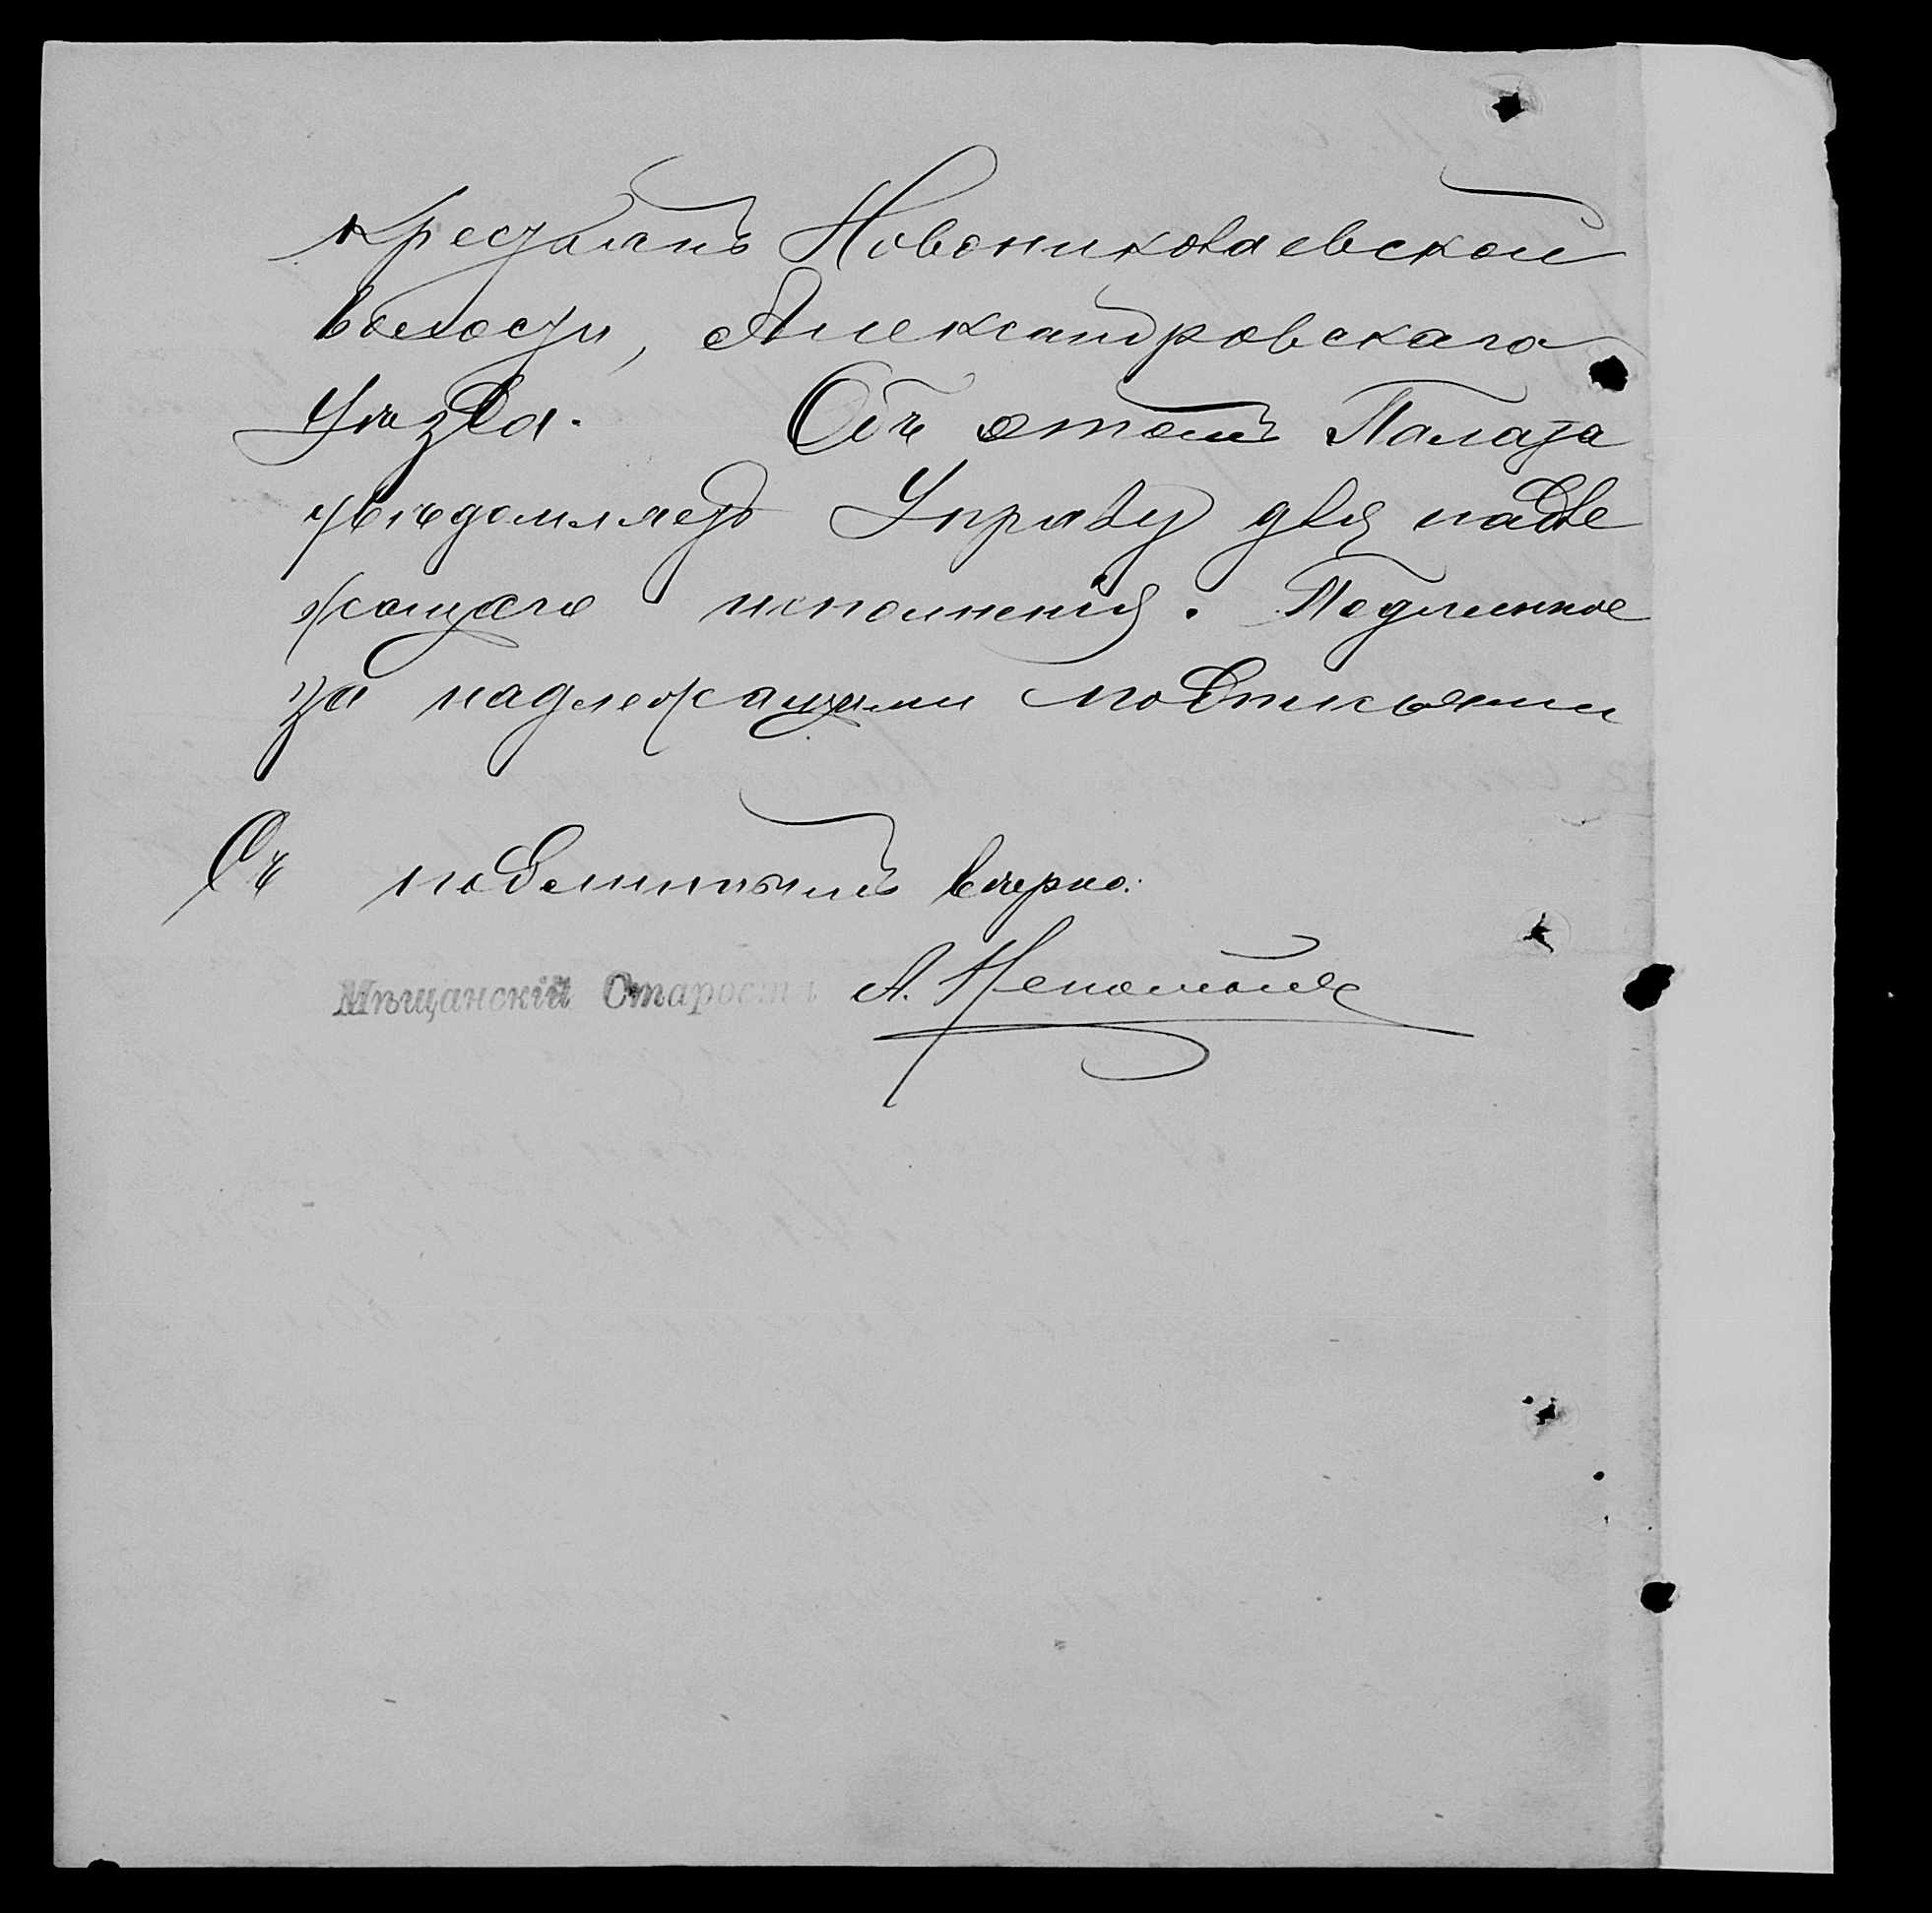 крестьянъ Новониколаевской
волости, Александровскаго
уѣзда. Объ этомъ Палата
увѣдомляетъ Управу для надле
жащаго исполненія. Подлинное
за надлежащими подписьями
Съ подлиннымъ вѣрно:
Мѣщанскій Староста А.